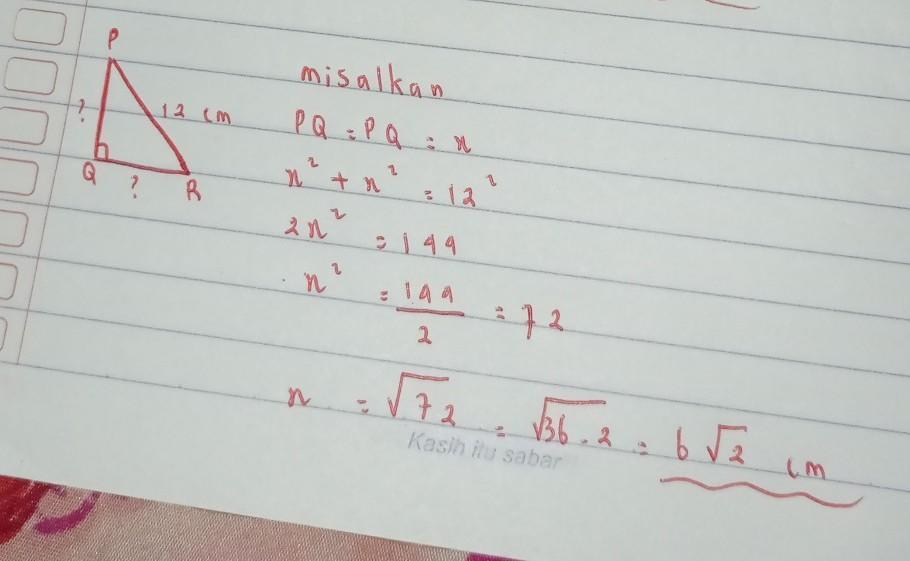 P
?
12 cm
Q
?
R
misalkan
PQ = PQ = x
x² + x² = 12²
2x² = 144
x² = 144/2 = 72
x = √72 = √36.2 = 6√2 cm
Kasih itu sabar